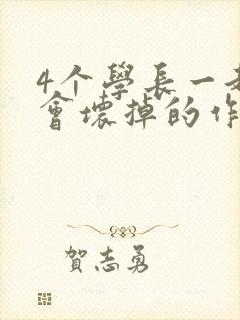 4个學長一起
會壞掉的作
賀志勇